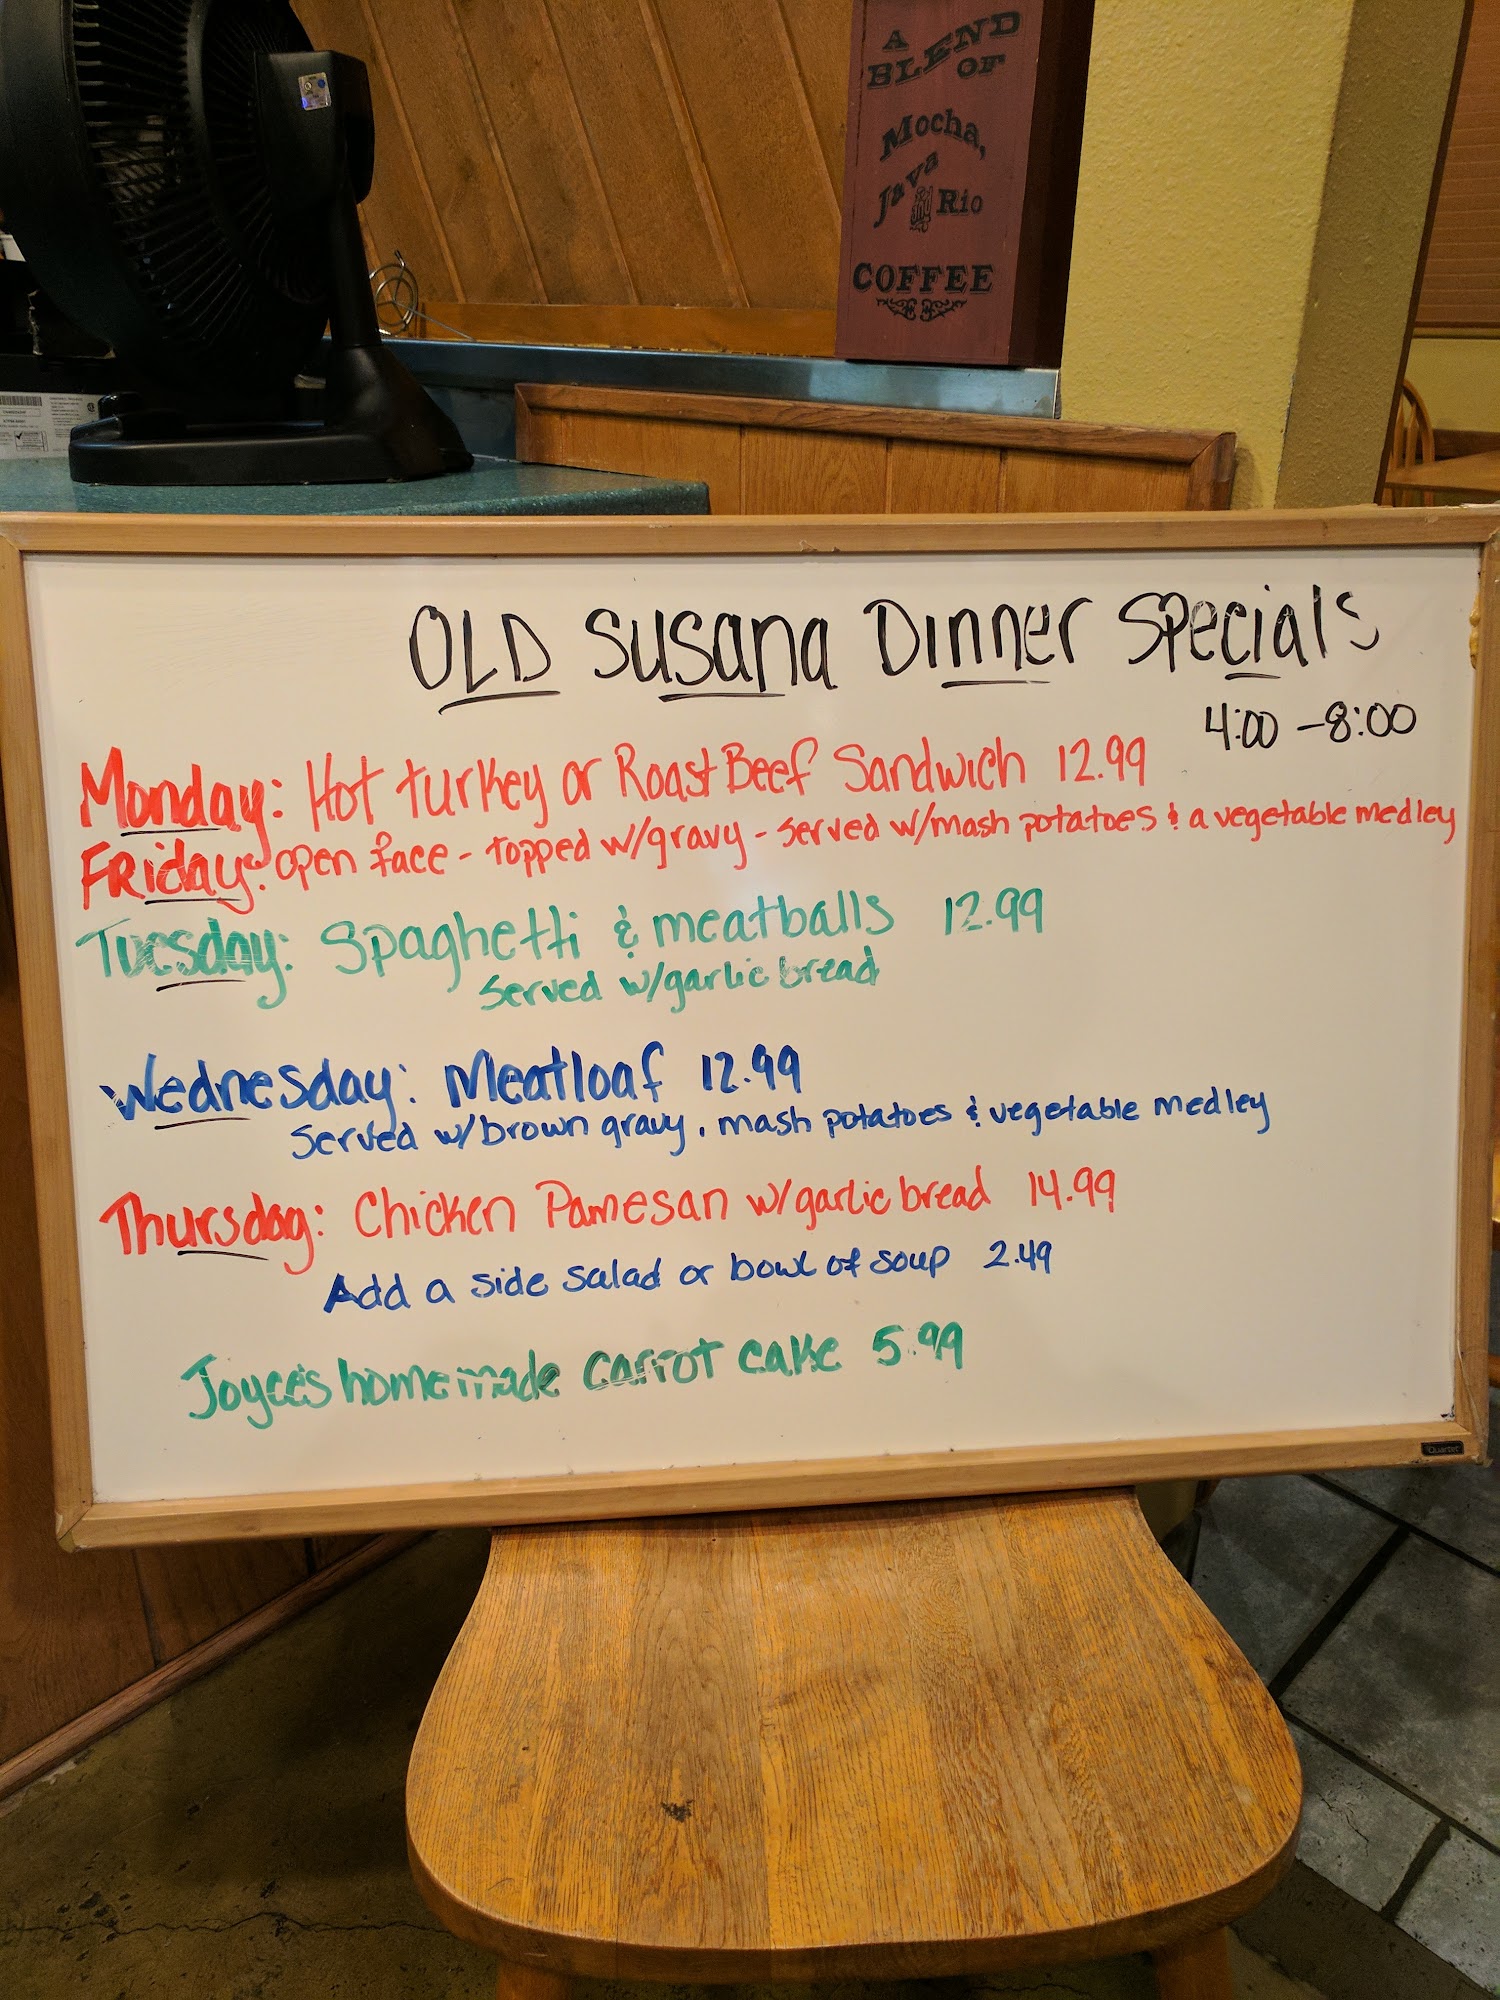 A
BLEND
OF
Mocha,
Java
Rio
COFFEE
OLD Susana Dinner Specials
4:00 - 8:00
Monday: Hot turkey or Roast Beef Sandwich 12.99
Friday: open face - topped w/gravy - served w/mash potatoes & a vegetable medley
Tuesday: Spaghetti & meatballs 12.99
Served w/garlic bread
Wednesday: Meatloaf 12.99
Served w/brown gravy, mash potatoes & vegetable medley
Thursday: Chicken Pamesan w/garlic bread 14.99
Add a side salad or bowl of soup 2.49
Joyce's homemade carrot cake 5.99
Quartet